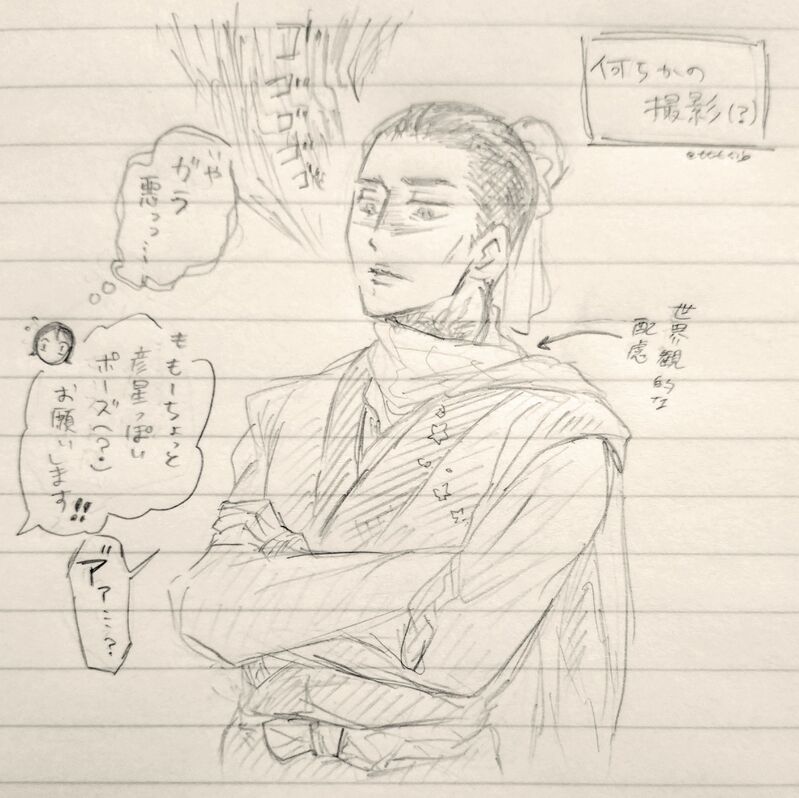 何らかの
撮影(?)
ゴゴゴゴゴゴ
がら
悪っっ…
や
世界観的な
配慮
ももーちょっと
彦星っぽい
ポーズ(?)
お願いします!!
ア゛ァ…?